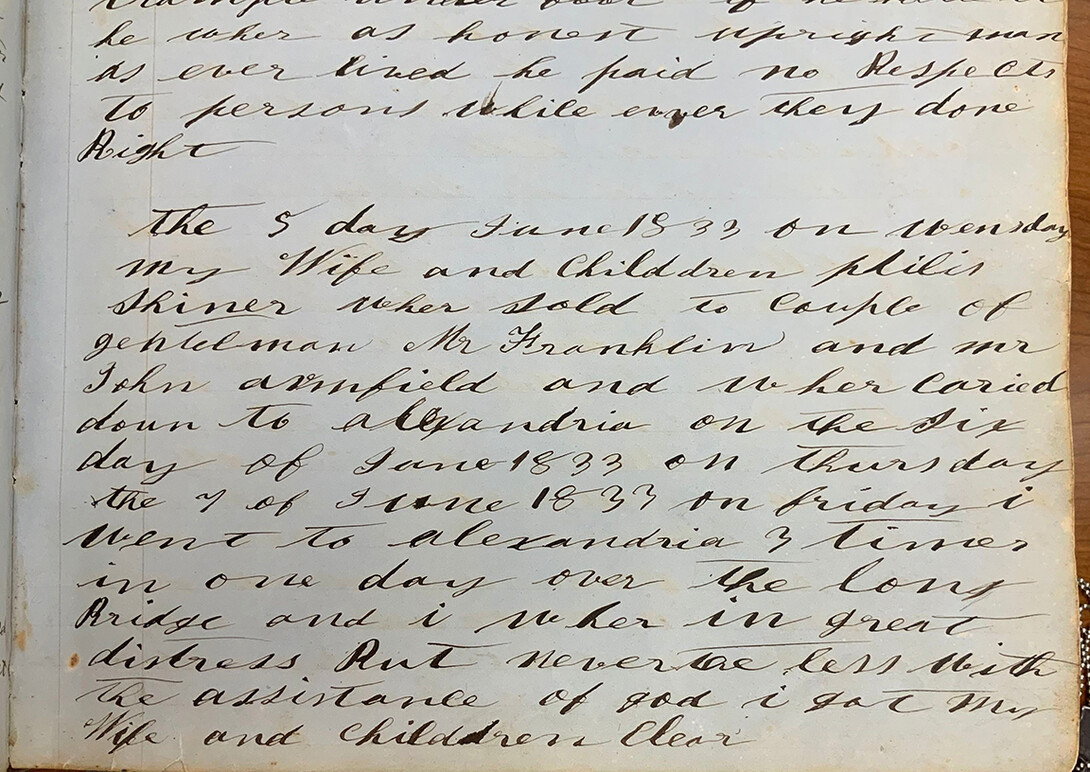 trample under foot if he
he wher as honest upright man
as ever lived he paid no Respects
to persons while ever they done
Right
the 5 day June 1833 on wensday
my Wife and Childdren philis
Shiner wher sold to Couple of
gentelman Mr Franklin and mr
John armfield and wher Caried
down to alexandria on the Six
day of June 1833 on thursday
the 7 of June 1833 on friday i
went to alexandria 3 times
in one day over the long
Bridge and i wher in great
distress But never the less with
the assistance of god i got My
Wife and Childdren Clear